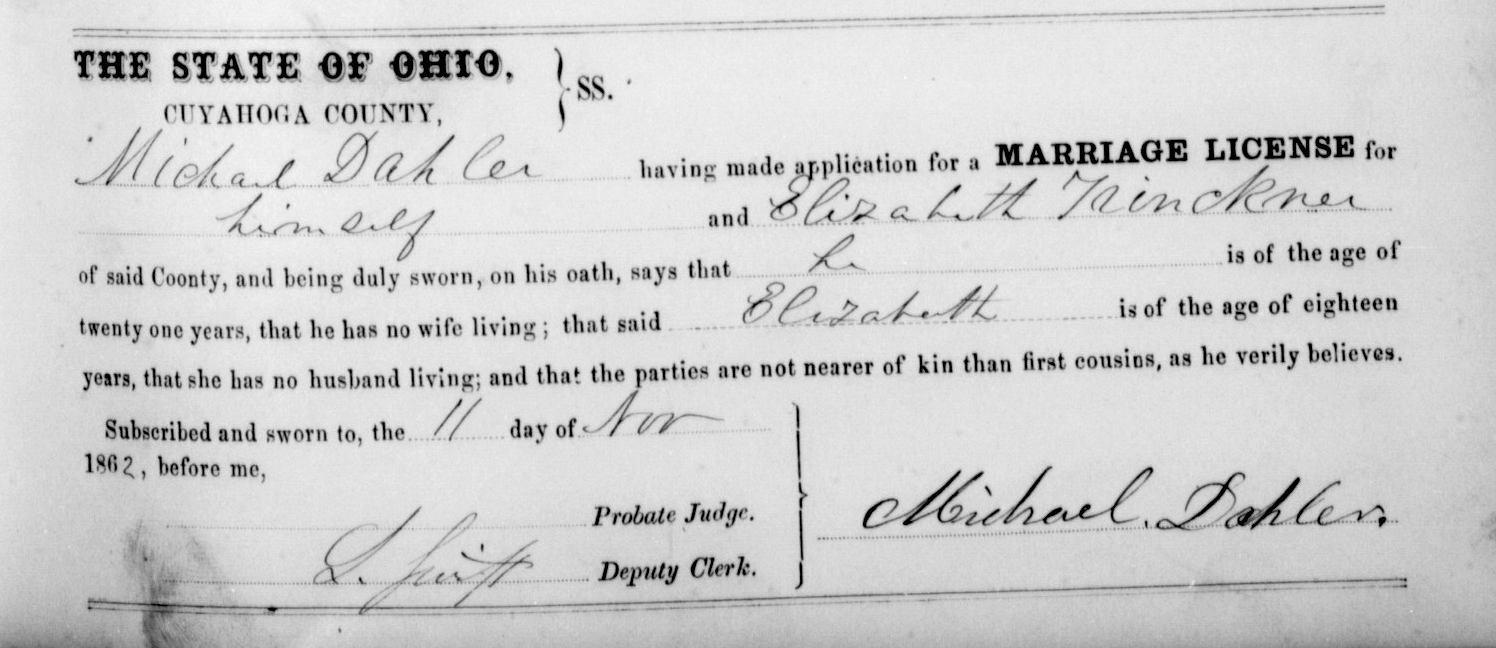 THE STATE OF OHIO, } SS.
CUYAHOGA COUNTY,
Michael Dahler having made application for a MARRIAGE LICENSE for
himself and Elizabeth Trinckner
of said Coonty, and being duly sworn, on his oath, says that he is of the age of
twenty one years, that he has no wife living; that said Elizabeth is of the age of eighteen
years, that she has no husband living; and that the parties are not nearer of kin than first cousins, as he verily believes.
Subscribed and sworn to, the 11 day of Nov
1862, before me,
Probate Judge.
Michael Dahler.
L. Swift Deputy Clerk.